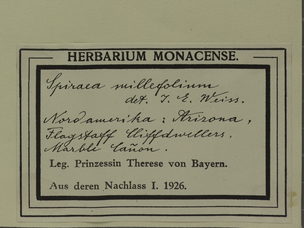 HERBARIUM MONACENSE.
Spiraea millefolium
det. J. E. Weiss.
Nordamerika: Arizona,
Flagstaff Cliffdwellers.
Marble Cañon.
Leg. Prinzessin Therese von Bayern.
Aus deren Nachlass I. 1926.